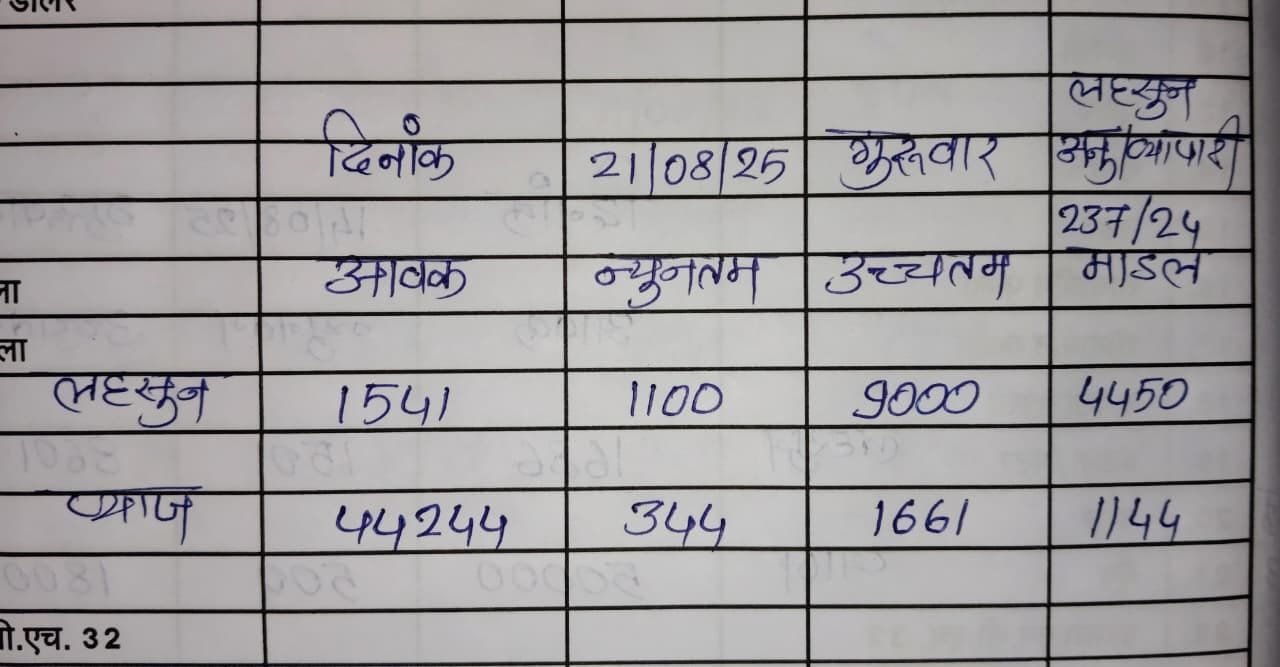 डॉलर
लहसुन
दिनांक 21/08/25 गुरूवार अनु/व्यापारी
237/24
ला आवक न्युनतम उच्चतम माडल
ला
लहसुन 1541 1100 9000 4450
प्याज 44244 344 1661 1144
पी.एच. 32